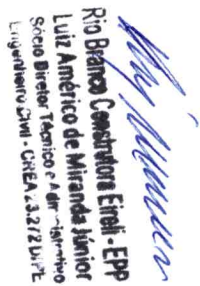 Rio Branco Construtora Eireli - EPP
Luiz Américo de Miranda Júnior
Sócio Diretor Técnico e Administrativo
Engenheiro Civil - CREA 23.272 D/PE